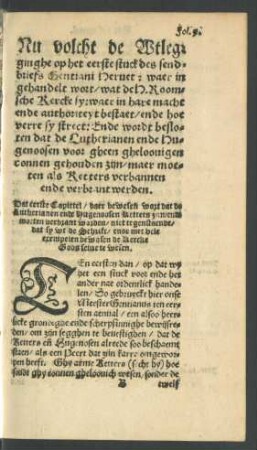 Fol. 9.
Nu volcht de Wtleg-
ginghe op het eerste stuck des send-
briefs Gentiani Hervet: waer in
gehandelt wort / wat de H. Room-
sche Kercke sy: waer in hare macht
ende authoriteyt bestaet / ende hoe
verre sy streckt: Ende wordt beslo-
ten dat de Lutherianen ende Hu-
genoosen voor gheen gheloovigen
connen gehouden zijn / maer moe-
ten als Ketters verbannen
ende verbrant werden.
Dat eerste Capittel / daer bewesen wort dat de
Lutherianen ende Hugenoosen Ketters
dat sy wt de Schrift / ende met veel
exempelen bewysen de Kercke
Gods selve te wesen.
EN eersten dan / op dat wy
het een stuck voor ende het
ander nae ordenlick hande-
len / So gebruyckt hier onse
Meester Gentianus ten eer-
sten artical / een alsoo heer-
licke gronninge ende scherpsinnighe bewijsre-
den / om zijn segghen te bevestighen / dat de
Ketters en Hugenosen alrede soo beschaemt
staen / als een Pecet dat zijn karre omgewor-
pen heeft. Ghy arme Ketters (secht hy) hoe
soudt ghy connen gheloovich wesen / sonder de
B twelf